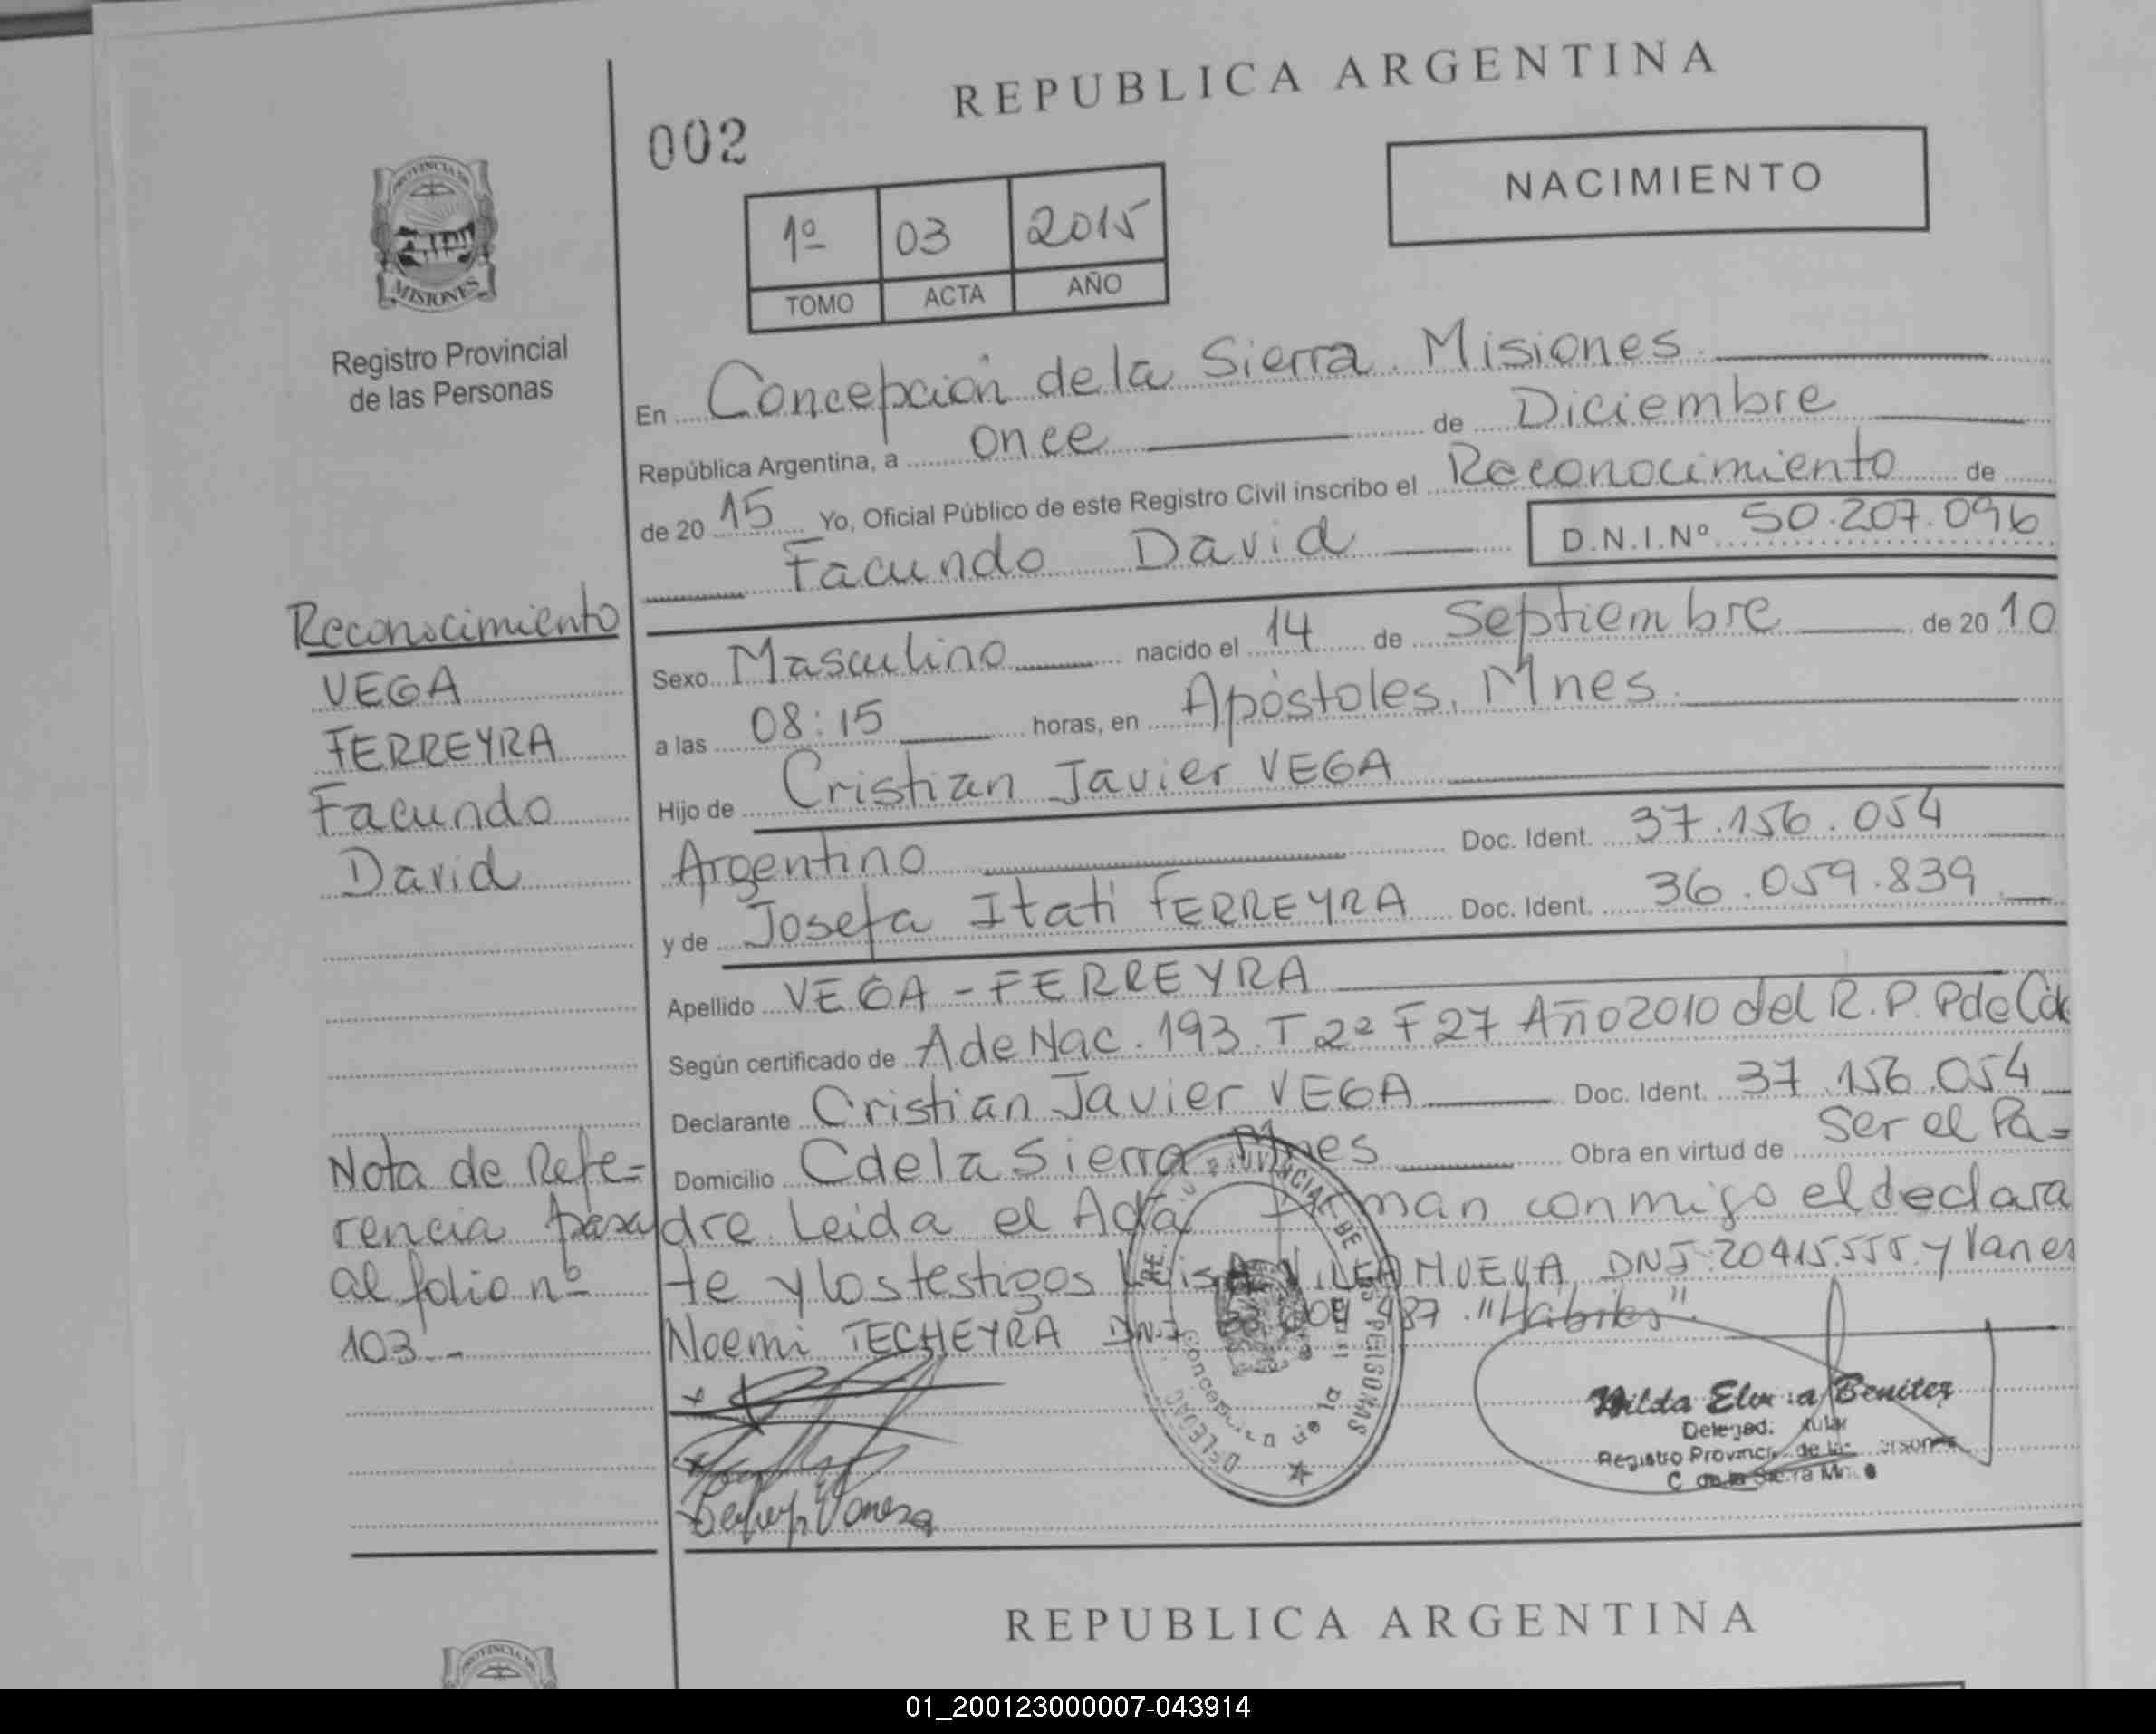 REPUBLICA ARGENTINA
002
NACIMIENTO
1º 03 2015
TOMO ACTA AÑO
PROVINCIA DE
MISIONES
Registro Provincial
de las Personas
En Concepción de la Sierra. Misiones
República Argentina, a once de Diciembre
de 20 15 Yo, Oficial Público de este Registro Civil inscribo el Reconocimiento de
Facundo David D.N.I.Nº 50.207.096
Sexo Masculino nacido el 14 de Septiembre de 20 10
a las 08:15 horas, en Apóstoles, Mnes.
Hijo de Cristian Javier VEGA
Argentino Doc. Ident. 37.156.054
y de Josefa Itati FERREYRA Doc. Ident. 36.059.839
Apellido VEGA-FERREYRA
Según certificado de A de Nac. 193 T 2º F 27 Año 2010 del R.P. P de C de
Declarante Cristian Javier VEGA Doc. Ident. 37.156.054
Domicilio C de la Sierra Mnes Obra en virtud de Ser el Pa=
dre. Leida el Acta Firman conmigo el declara
te y los testigos VILLANUEVA, DNI: 20415.555. y Vanes
Noemi TECHEYRA DNI 487. "Habiles".
Reconocimiento
VEGA
FERREYRA
Facundo
David
Nota de Refe=
rencia pasa
al folio nº
103.-
Vanesa
DE LAS PERSONAS
Concepción de la
Hilda Benitez
Registro de las
C de la Sierra
REPUBLICA ARGENTINA
01_200123000007-043914